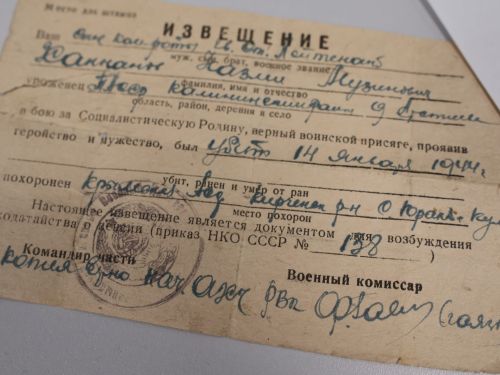 Место для штампа
ИЗВЕЩЕНИЕ
Ваш сын ком. роты Гв. Ст. Лейтенант
муж, сын, брат, военное звание
Ханнанов
фамилия, имя и отчество
уроженец ТАССР Калининский район
область, район, деревня и село
в бою за Социалистическую Родину, верный воинской присяге, проявив
геройство и мужество, был убит 14 января 1944 г.
убит, ранен и умер от ран
похоронен Крымская
место похорон
Настоящее извещение является документом для возбуждения
ходатайства о пенсии (приказ НКО СССР № 138 )
Командир части
Военный комиссар
копия верно нач. АХЧ РВК